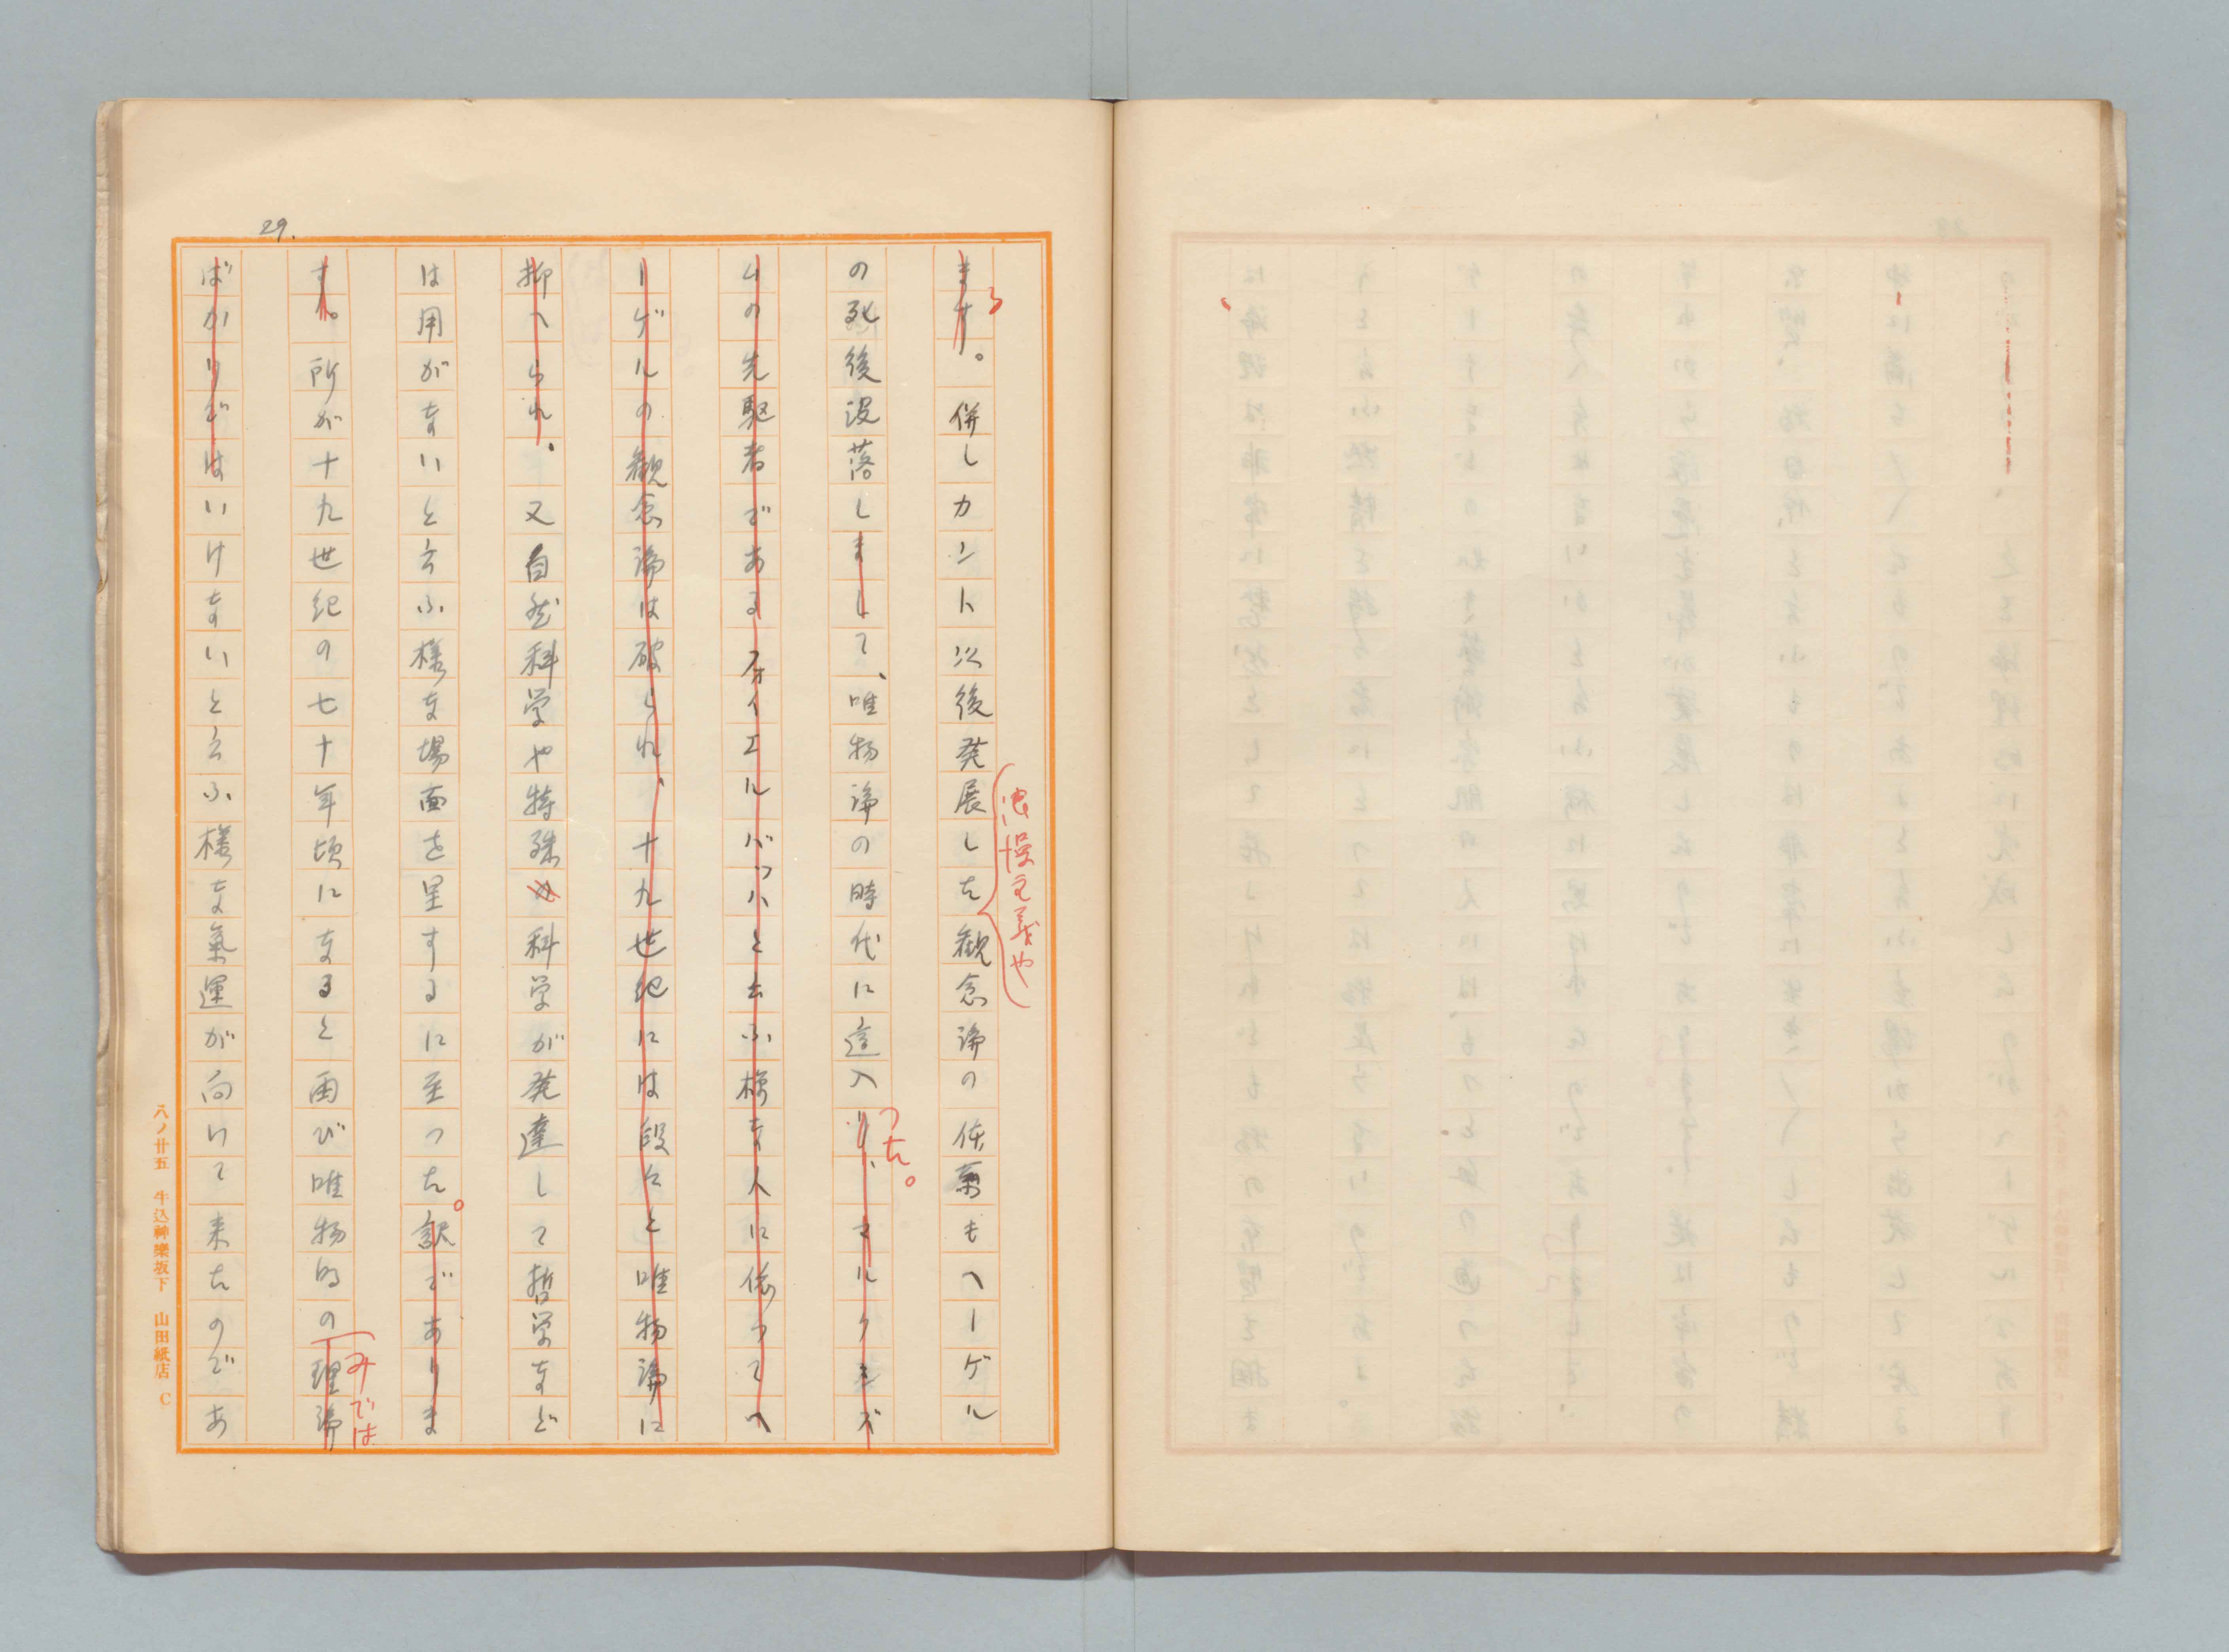 29.
ます。併しカント以後発展した観念論の体系もヘーゲル
る
浪漫主義や
の死後没落しまして、唯物論の時代に這入り、マルクシズ
つた。
ムの先駆者であるフォイエルバッハと云ふ様な人に依つてヘ
ーゲルの観念論は破られ、十九世紀には段々と唯物論に
抑へられ、又自然科学や特殊の科学が発達して哲学など
は用がないと云ふ様な場面を呈するに至つた。訳でありま
す。所が十九世紀の七十年頃になると再び唯物的の理論
みでは
ばかりではいけないと云ふ様な氣運が向けて来たのであ
八ノ廿五 牛込神樂坂下 山田紙店 C